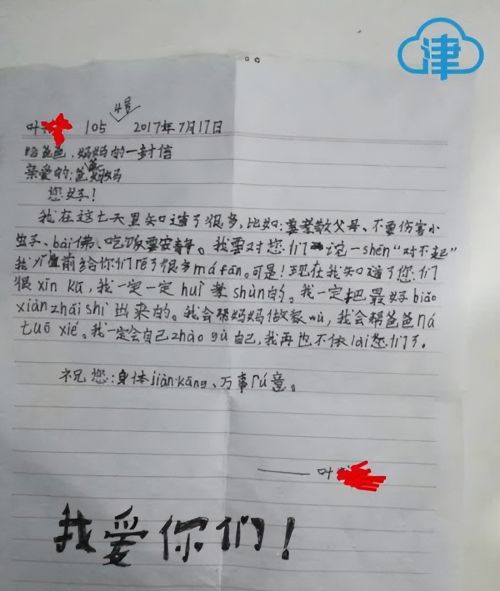 津
4号
叶 105 2017年7月17日
给爸爸、妈妈的一封信
亲爱的:爸爸妈妈
您好!
我在这七天里知道了很多,比如:尊孝敬父母、不要伤害小
虫子、bài佛、吃饭要安静。我要对您们说一shēn“对不起”
我以前给你们 了很多má fan。可是!现在我知道了您们
很xīn kǔ,我一定一定huì孝shùn的。我一定把最好biǎo
xiàn zhǎi shì出来的。我会帮妈妈做家wù,我会帮爸爸ná
tuō xié。我一定会自己zhào gù自己,我再也不依lài您们了。
祝您:身体jiàn kāng、万事rú意。
——叶
我爱你们!